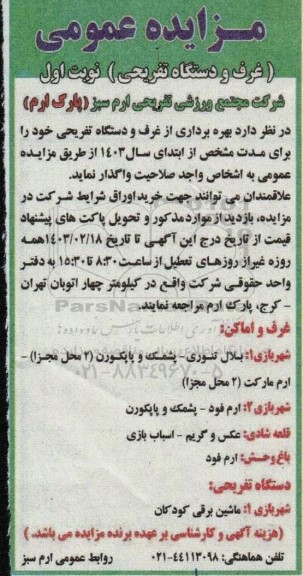 مـزایده عمومی
( غرف و دستگاه تفریحی ) نوبت اول
شرکت مجتمع ورزشی تفریحی ارم سبز (پارک ارم)
در نظر دارد بهره برداری از غرف و دستگاه تفریحی خود را
برای مدت مشخص از ابتدای سال۱۴۰۳ از طریق مزایـده
عمومی به اشخاص واجد صلاحیت واگذار نماید.
علاقمندان می توانند جهت خریداوراق شرایط شـرکت در
مزایده، بازدید از موارد مذکور و تحویل پاکت های پیشنهاد
قیمت از تاریخ درج این آگهـی تا تاریخ ۱۴۰۳/۰۲/۱۸همـه
روزه غیراز روزهـای تعطیل از ساعت۸:۳۰ تا ۱۵:۳۰ به دفتـر
واحد حقوقـی شرکت واقـع در کیلومتر چهار اتوبان تهران
- کرج، پارک ارم مراجعه نمایند.
غرف و اماکن:
شهربازی۱: بـلال تنـوری - پشمـک و پاپکـورن (۲ محل مجـزا) -
ارم مارکت (۲ محل مجزا)
شهربازی۲: ارم فود - پشمک و پاپکورن
قلعه شادی: عکس و گریم - اسباب بازی
باغ وحـش: ارم فود
دستگاه تفریحی:
شهربازی ۱: ماشین برقی کودکان
(هزینه آگهی و کارشناسی بر عهده برنده مزایده می باشد. )
تلفن هماهنگی: ۴۴۱۱۳۰۹۸-۰۲۱ روابط عمومی ارم سبز
۰۲۱-۸۸۳۴۹۶۷۰-۵